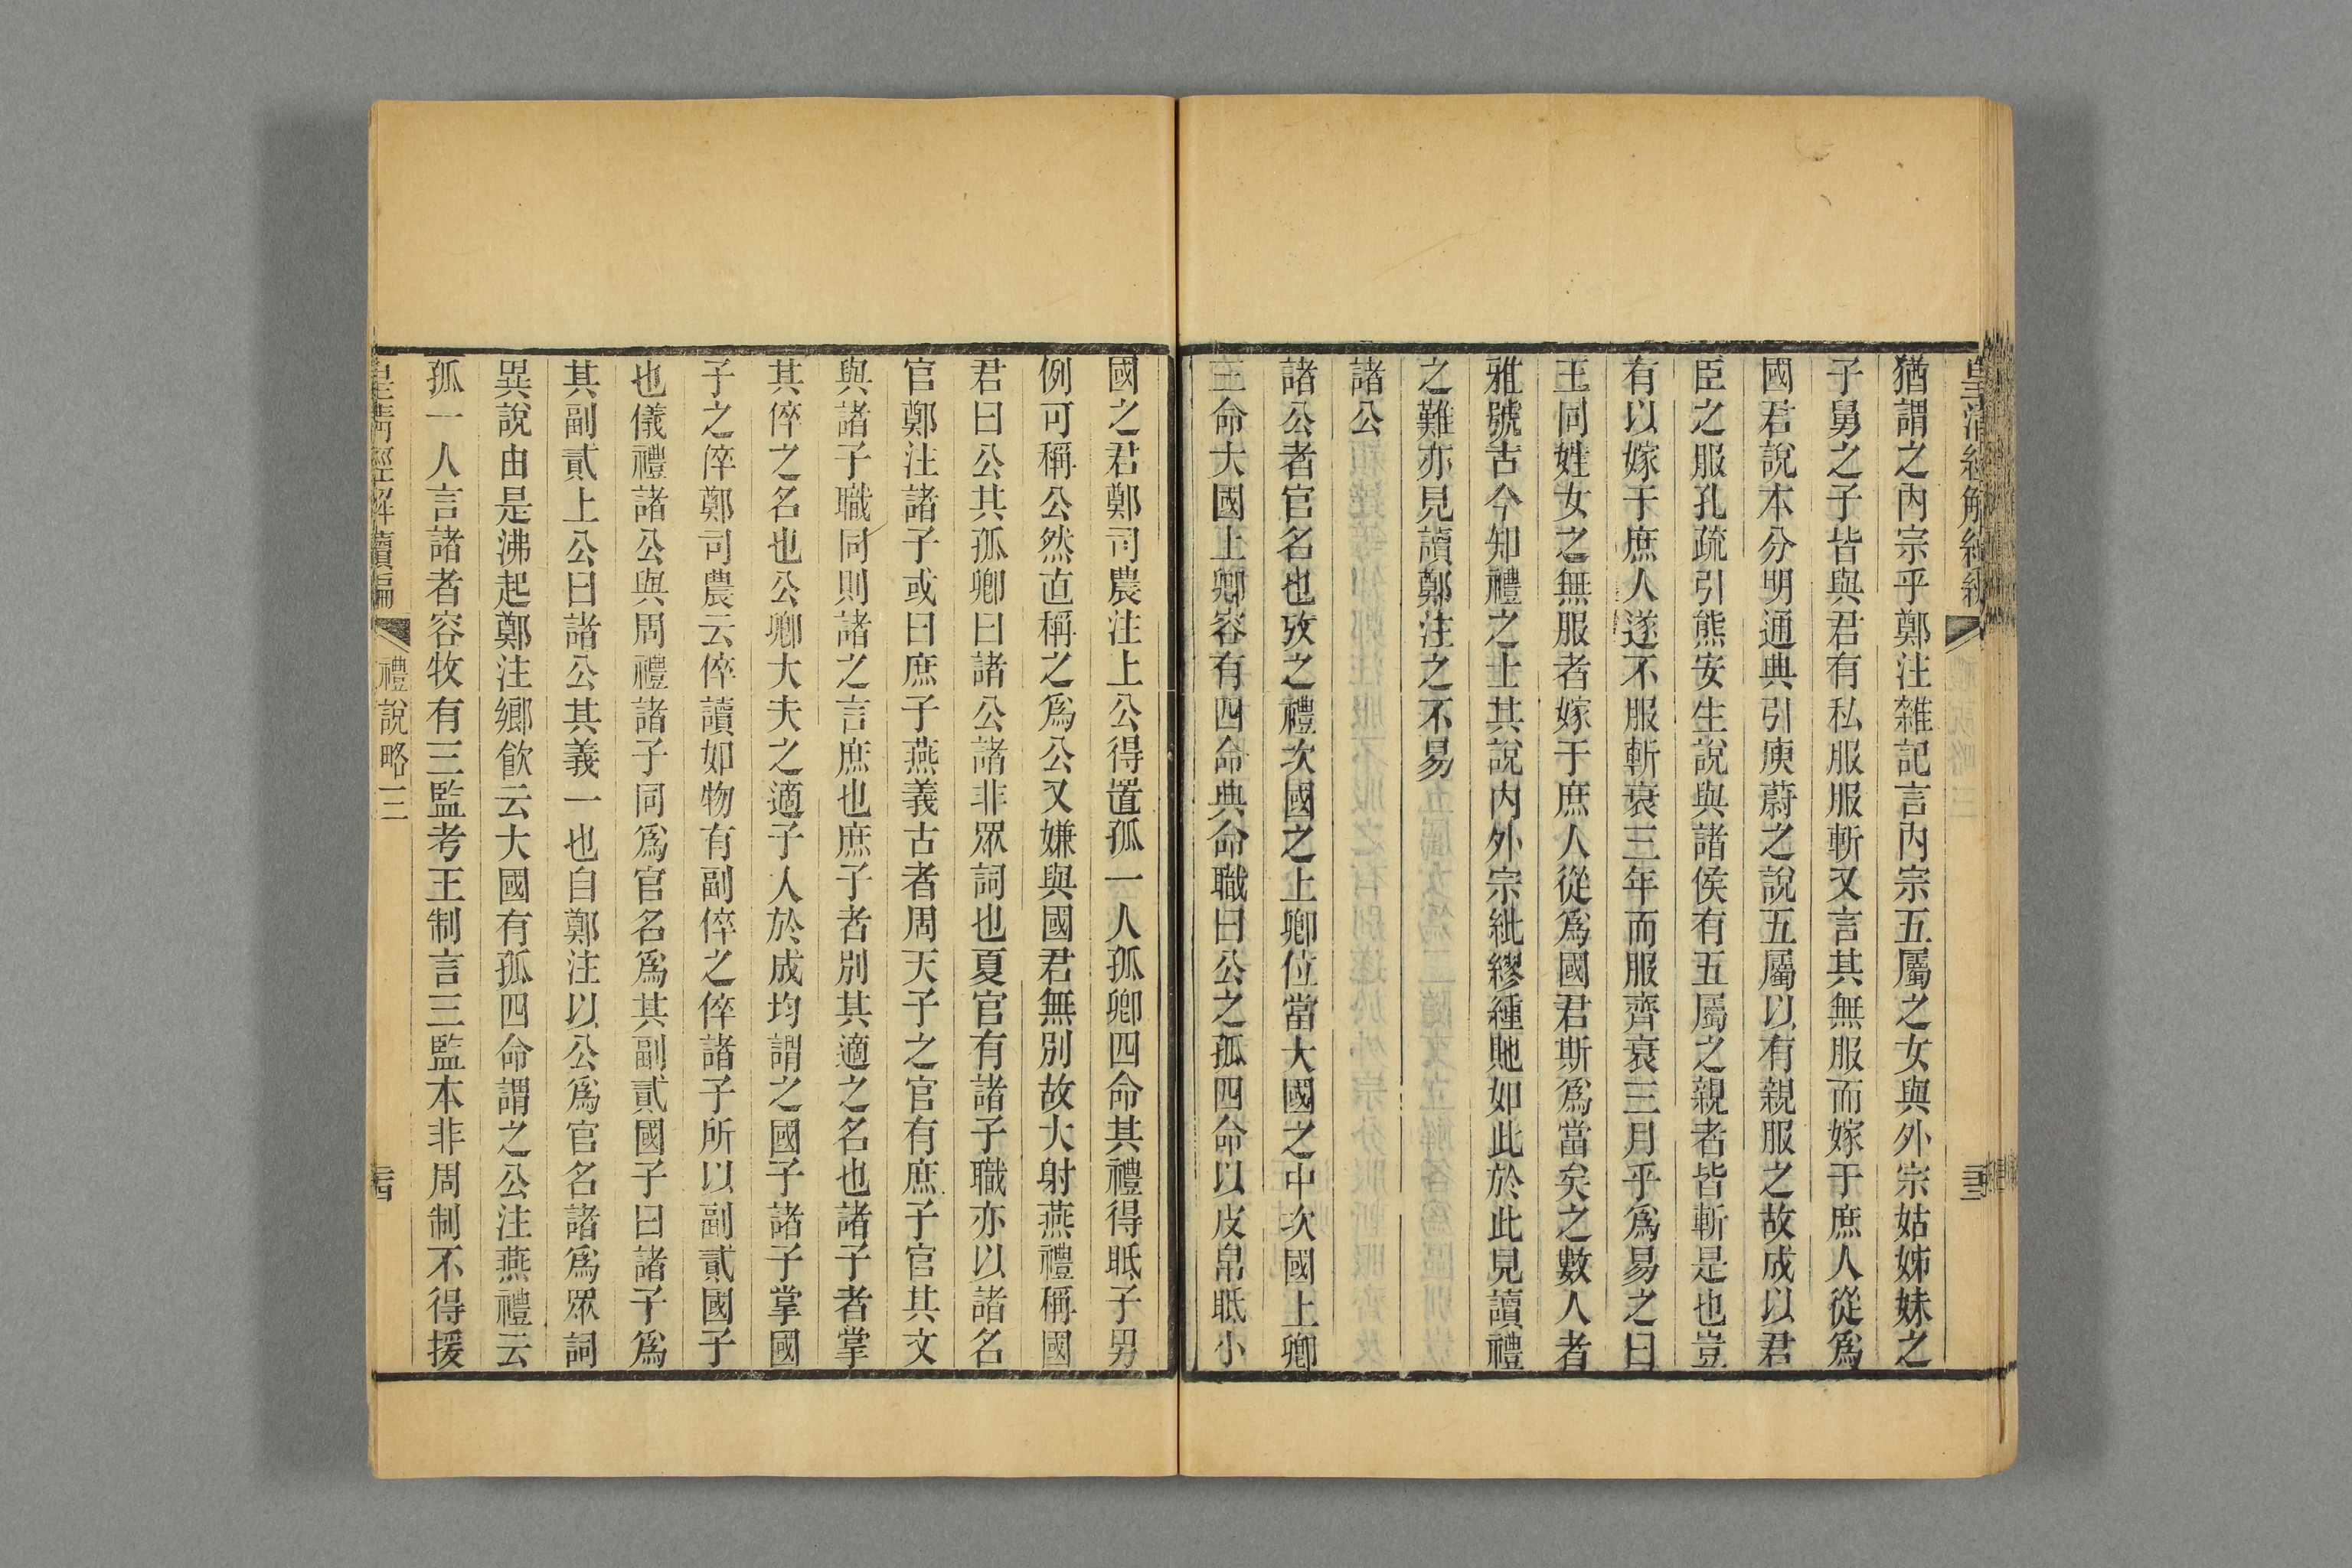 皇清經解續編 禮說略三 三三
猶謂之內宗乎鄭注雜記言內宗五屬之女與外宗姑姊妹之
子舅之子皆與君有私服服斬又言其無服而嫁于庶人從爲
國君說本分明通典引庾蔚之說五屬以有親服之故成以君
臣之服孔疏引熊安生說與諸侯有五屬之親者皆斬是也豈
有以嫁于庶人遂不服斬衰三年而服齊衰三月乎爲易之曰
王同姓女之無服者嫁于庶人從爲國君斯爲當矣之數人者
雅號古今知禮之士其說內外宗紕繆緟貤如此於此見讀禮
之難亦見讀鄭注之不易
諸公
諸公者官名也攷之禮次國之上卿位當大國之中次國上卿
三命大國上卿容有四命典命職曰公之孤四命以皮帛眡小
國之君鄭司農注上公得置孤一人孤卿四命其禮得眡子男
例可稱公然直稱之爲公又嫌與國君無別故大射燕禮稱國
君曰公其孤卿曰諸公諸非眾詞也夏官有諸子職亦以諸名
官鄭注諸子或曰庶子燕義古者周天子之官有庶子官其文
與諸子職同則諸之言庶也庶子者別其適之名也諸子者掌
其倅之名也公卿大夫之適子入於成均謂之國子諸子掌國
子之倅鄭司農云倅讀如物有副倅之倅諸子所以副貳國子
也儀禮諸公與周禮諸子同爲官名爲其副貳國子曰諸子爲
其副貳上公曰諸公其義一也自鄭注以公爲官名諸爲眾詞
異說由是沸起鄭注鄉飮云大國有孤四命謂之公注燕禮云
孤一人言諸者容牧有三監考王制言三監本非周制不得援
皇清經解續編 禮說略三 三四